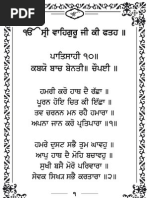 ੴ ਸ੍ਰੀ ਵਾਹਿਗੁਰੂ ਜੀ ਕੀ ਫਤਹ ॥
ਪਾਤਿਸਾਹੀ ੧੦॥
ਕਬਯੋ ਬਾਚ ਬੇਨਤੀ॥ ਚੌਪਈ ॥
ਹਮਰੀ ਕਰੋ ਹਾਥ ਦੈ ਰੱਛਾ ॥
ਪੂਰਨ ਹੋਇ ਚਿਤ ਕੀ ਇੱਛਾ ॥
ਤਵ ਚਰਨਨ ਮਨ ਰਹੈ ਹਮਾਰਾ ॥
ਅਪਨਾ ਜਾਨ ਕਰੋ ਪ੍ਰਤਿਪਾਰਾ ॥੧॥
ਹਮਰੇ ਦੁਸਟ ਸਭੈ ਤੁਮ ਘਾਵਹੁ ॥
ਆਪੁ ਹਾਥ ਦੈ ਮੋਹਿ ਬਚਾਵਹੁ ॥
ਸੁਖੀ ਬਸੈ ਮੋਰੋ ਪਰਿਵਾਰਾ ॥
ਸੇਵਕ ਸਿਖ੍ਯ ਸਭੈ ਕਰਤਾਰਾ ॥੨॥
੧